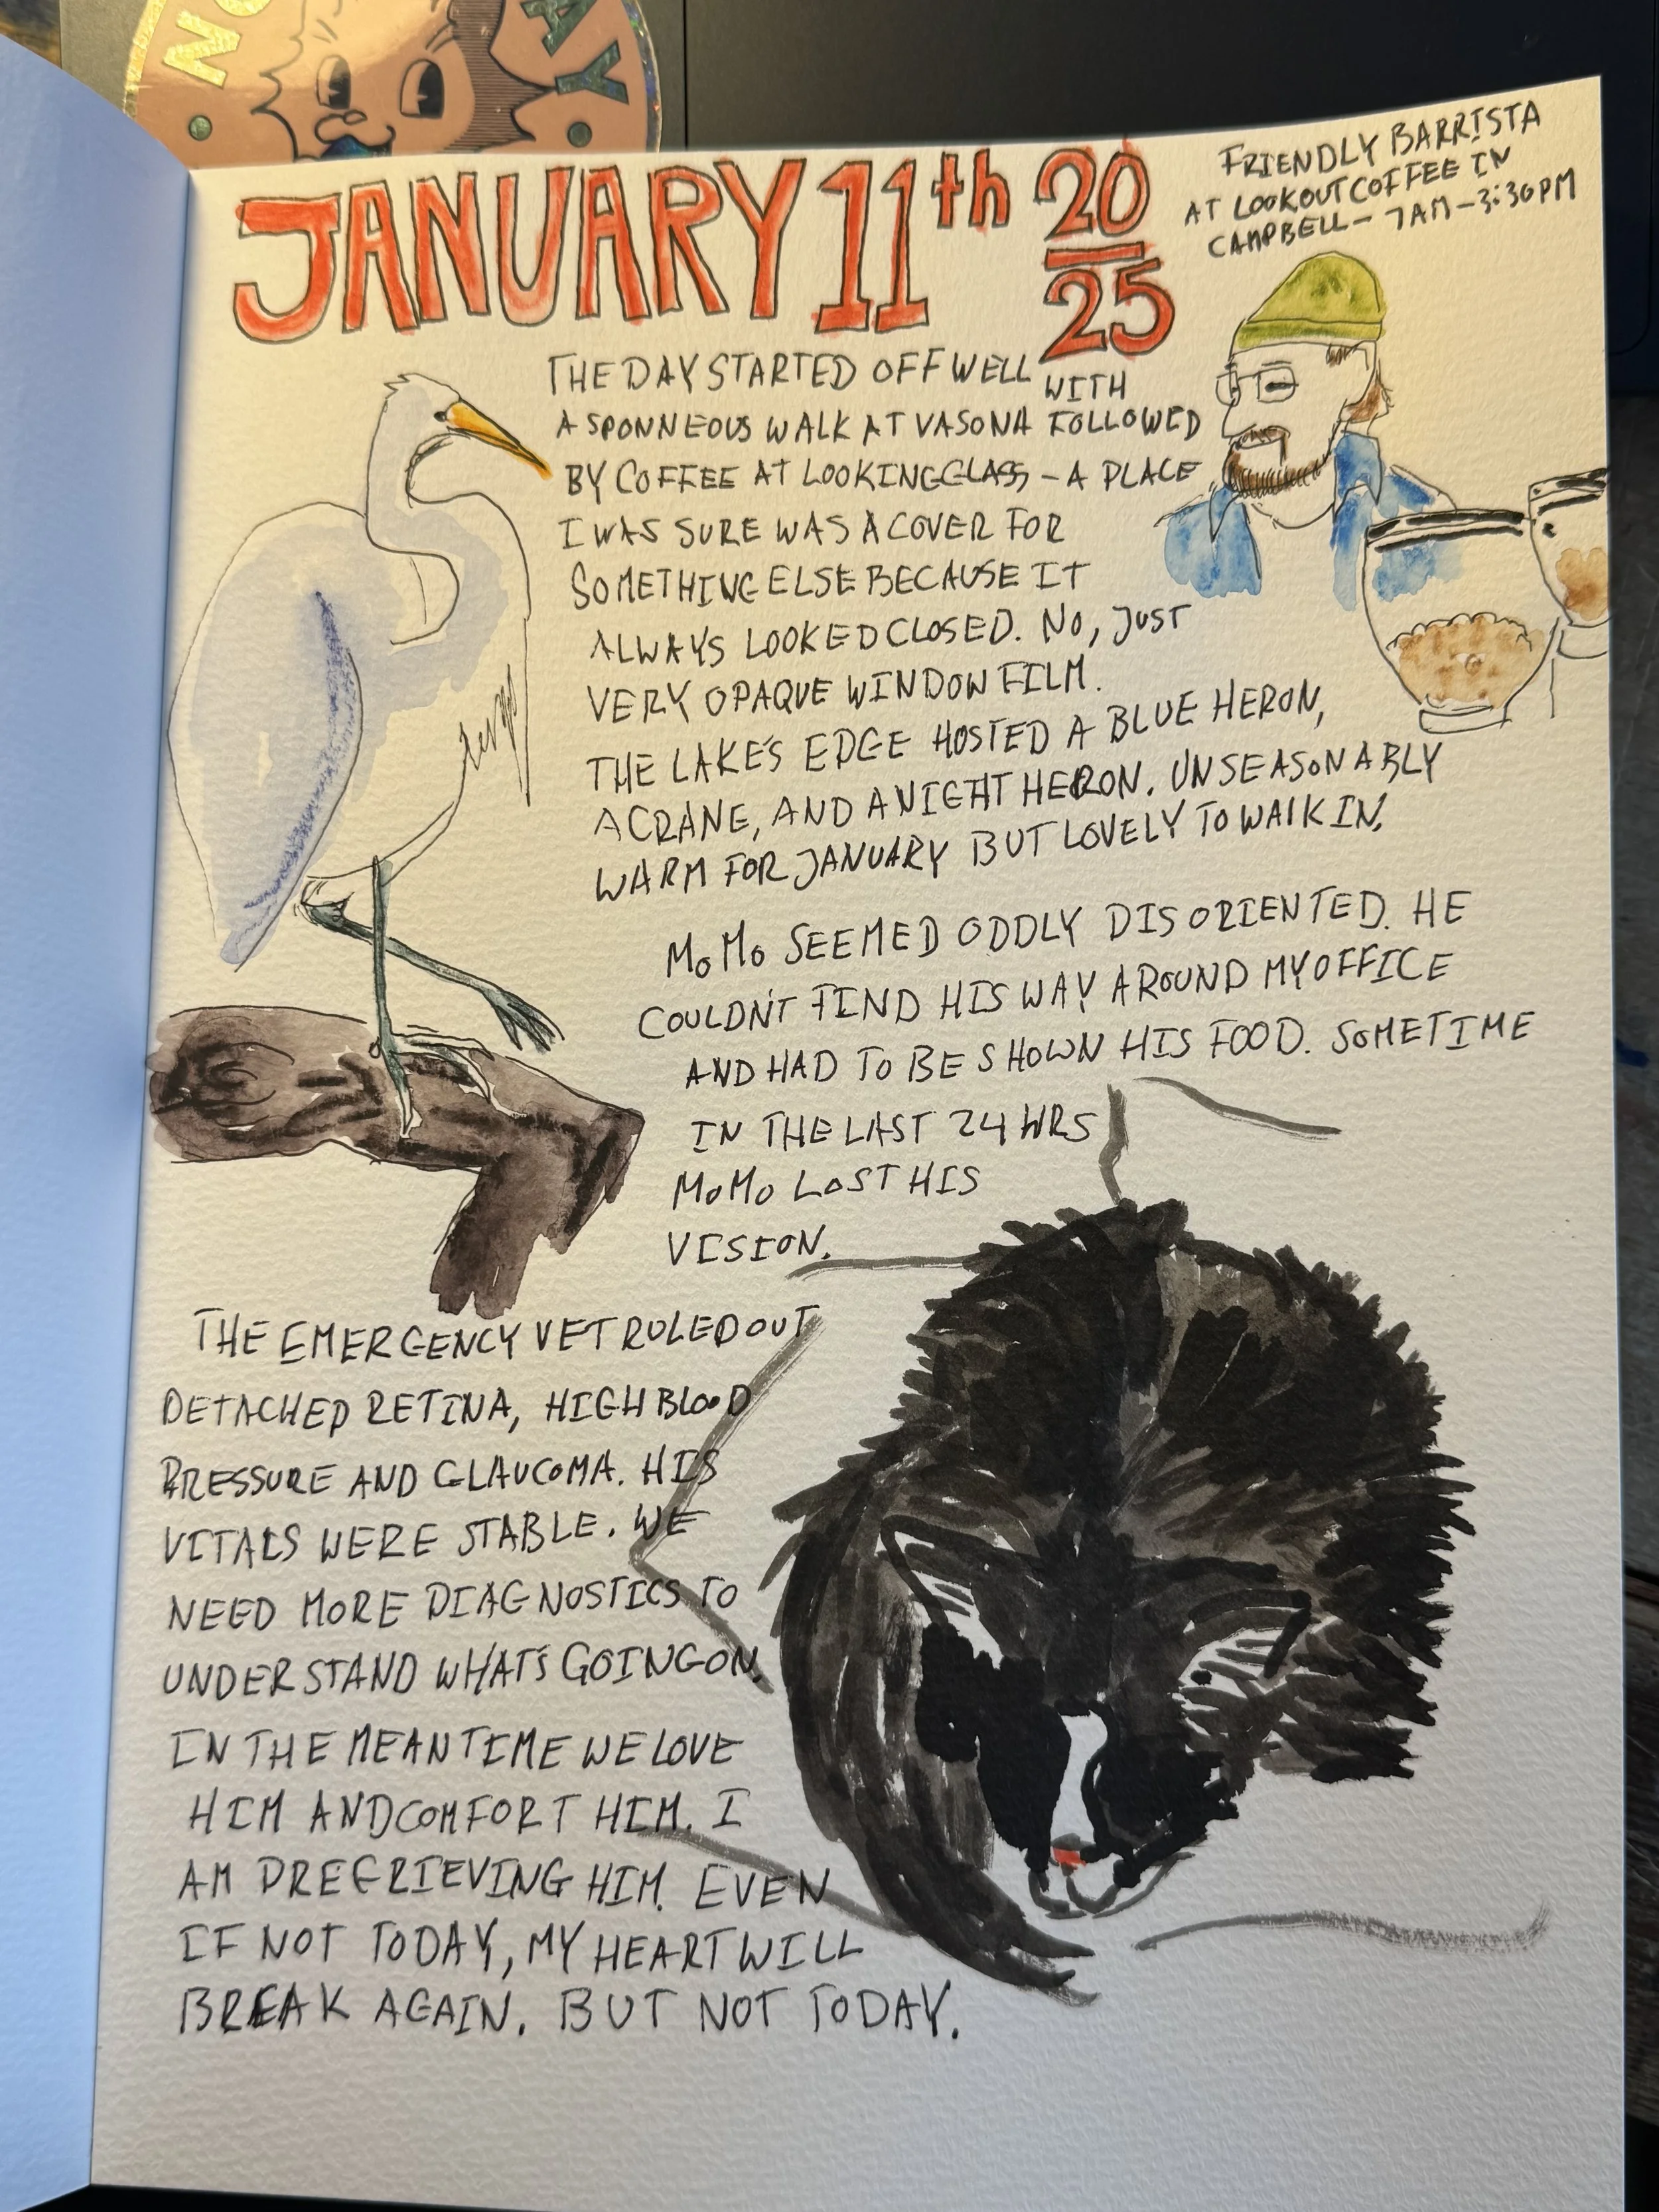 NO
AY
JANUARY 11th 20
25
FRIENDLY BARRISTA
AT LOOKOUT COFFEE IN
CAMPBELL - 7AM - 3:30PM
THE DAY STARTED OFF WELL WITH
A SPONNEOUS WALK AT VASONA FOLLOWED
BY COFFEE AT LOOKINGGLASS - A PLACE
I WAS SURE WAS A COVER FOR
SOMETHING ELSE BECAUSE IT
ALWAYS LOOKED CLOSED. NO, JUST
VERY OPAQUE WINDOW FILM.
THE LAKE'S EDGE HOSTED A BLUE HERON,
A CRANE, AND A NIGHT HERON. UNSEASONABLY
WARM FOR JANUARY BUT LOVELY TO WALK IN.
MOMO SEEMED ODDLY DISORIENTED. HE
COULDN'T FIND HIS WAY AROUND MY OFFICE
AND HAD TO BE SHOWN HIS FOOD. SOMETIME
IN THE LAST 24 HRS
MOMO LOST HIS
VISION.
THE EMERGENCY VET RULED OUT
DETACHED RETINA, HIGH BLOOD
PRESSURE AND GLAUCOMA. HIS
VITALS WERE STABLE. WE
NEED MORE DIAGNOSTICS TO
UNDERSTAND WHAT'S GOING ON.
IN THE MEANTIME WE LOVE
HIM AND COMFORT HIM. I
AM PREGRIEVING HIM. EVEN
IF NOT TODAY, MY HEART WILL
BREAK AGAIN. BUT NOT TODAY.